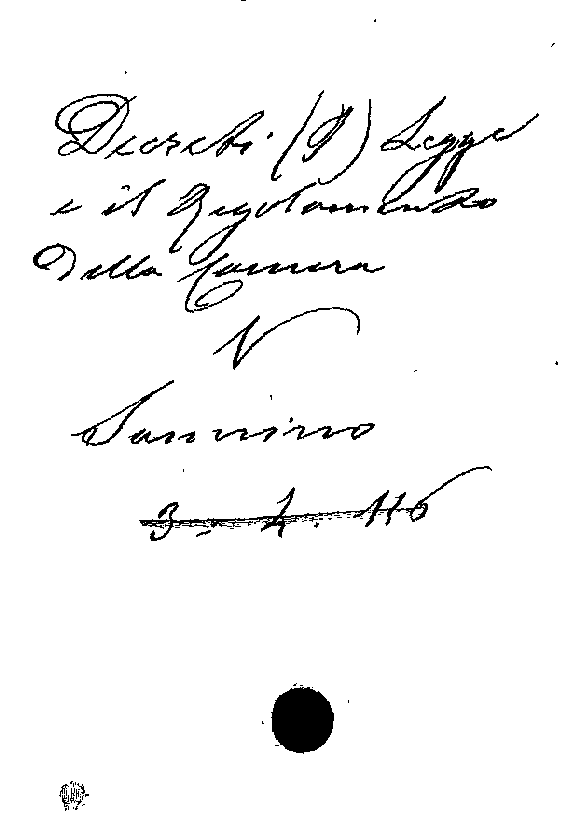 Decreti (I) Legge
e il Regolamento
della Camera
V
Sannino
3. 4. 116